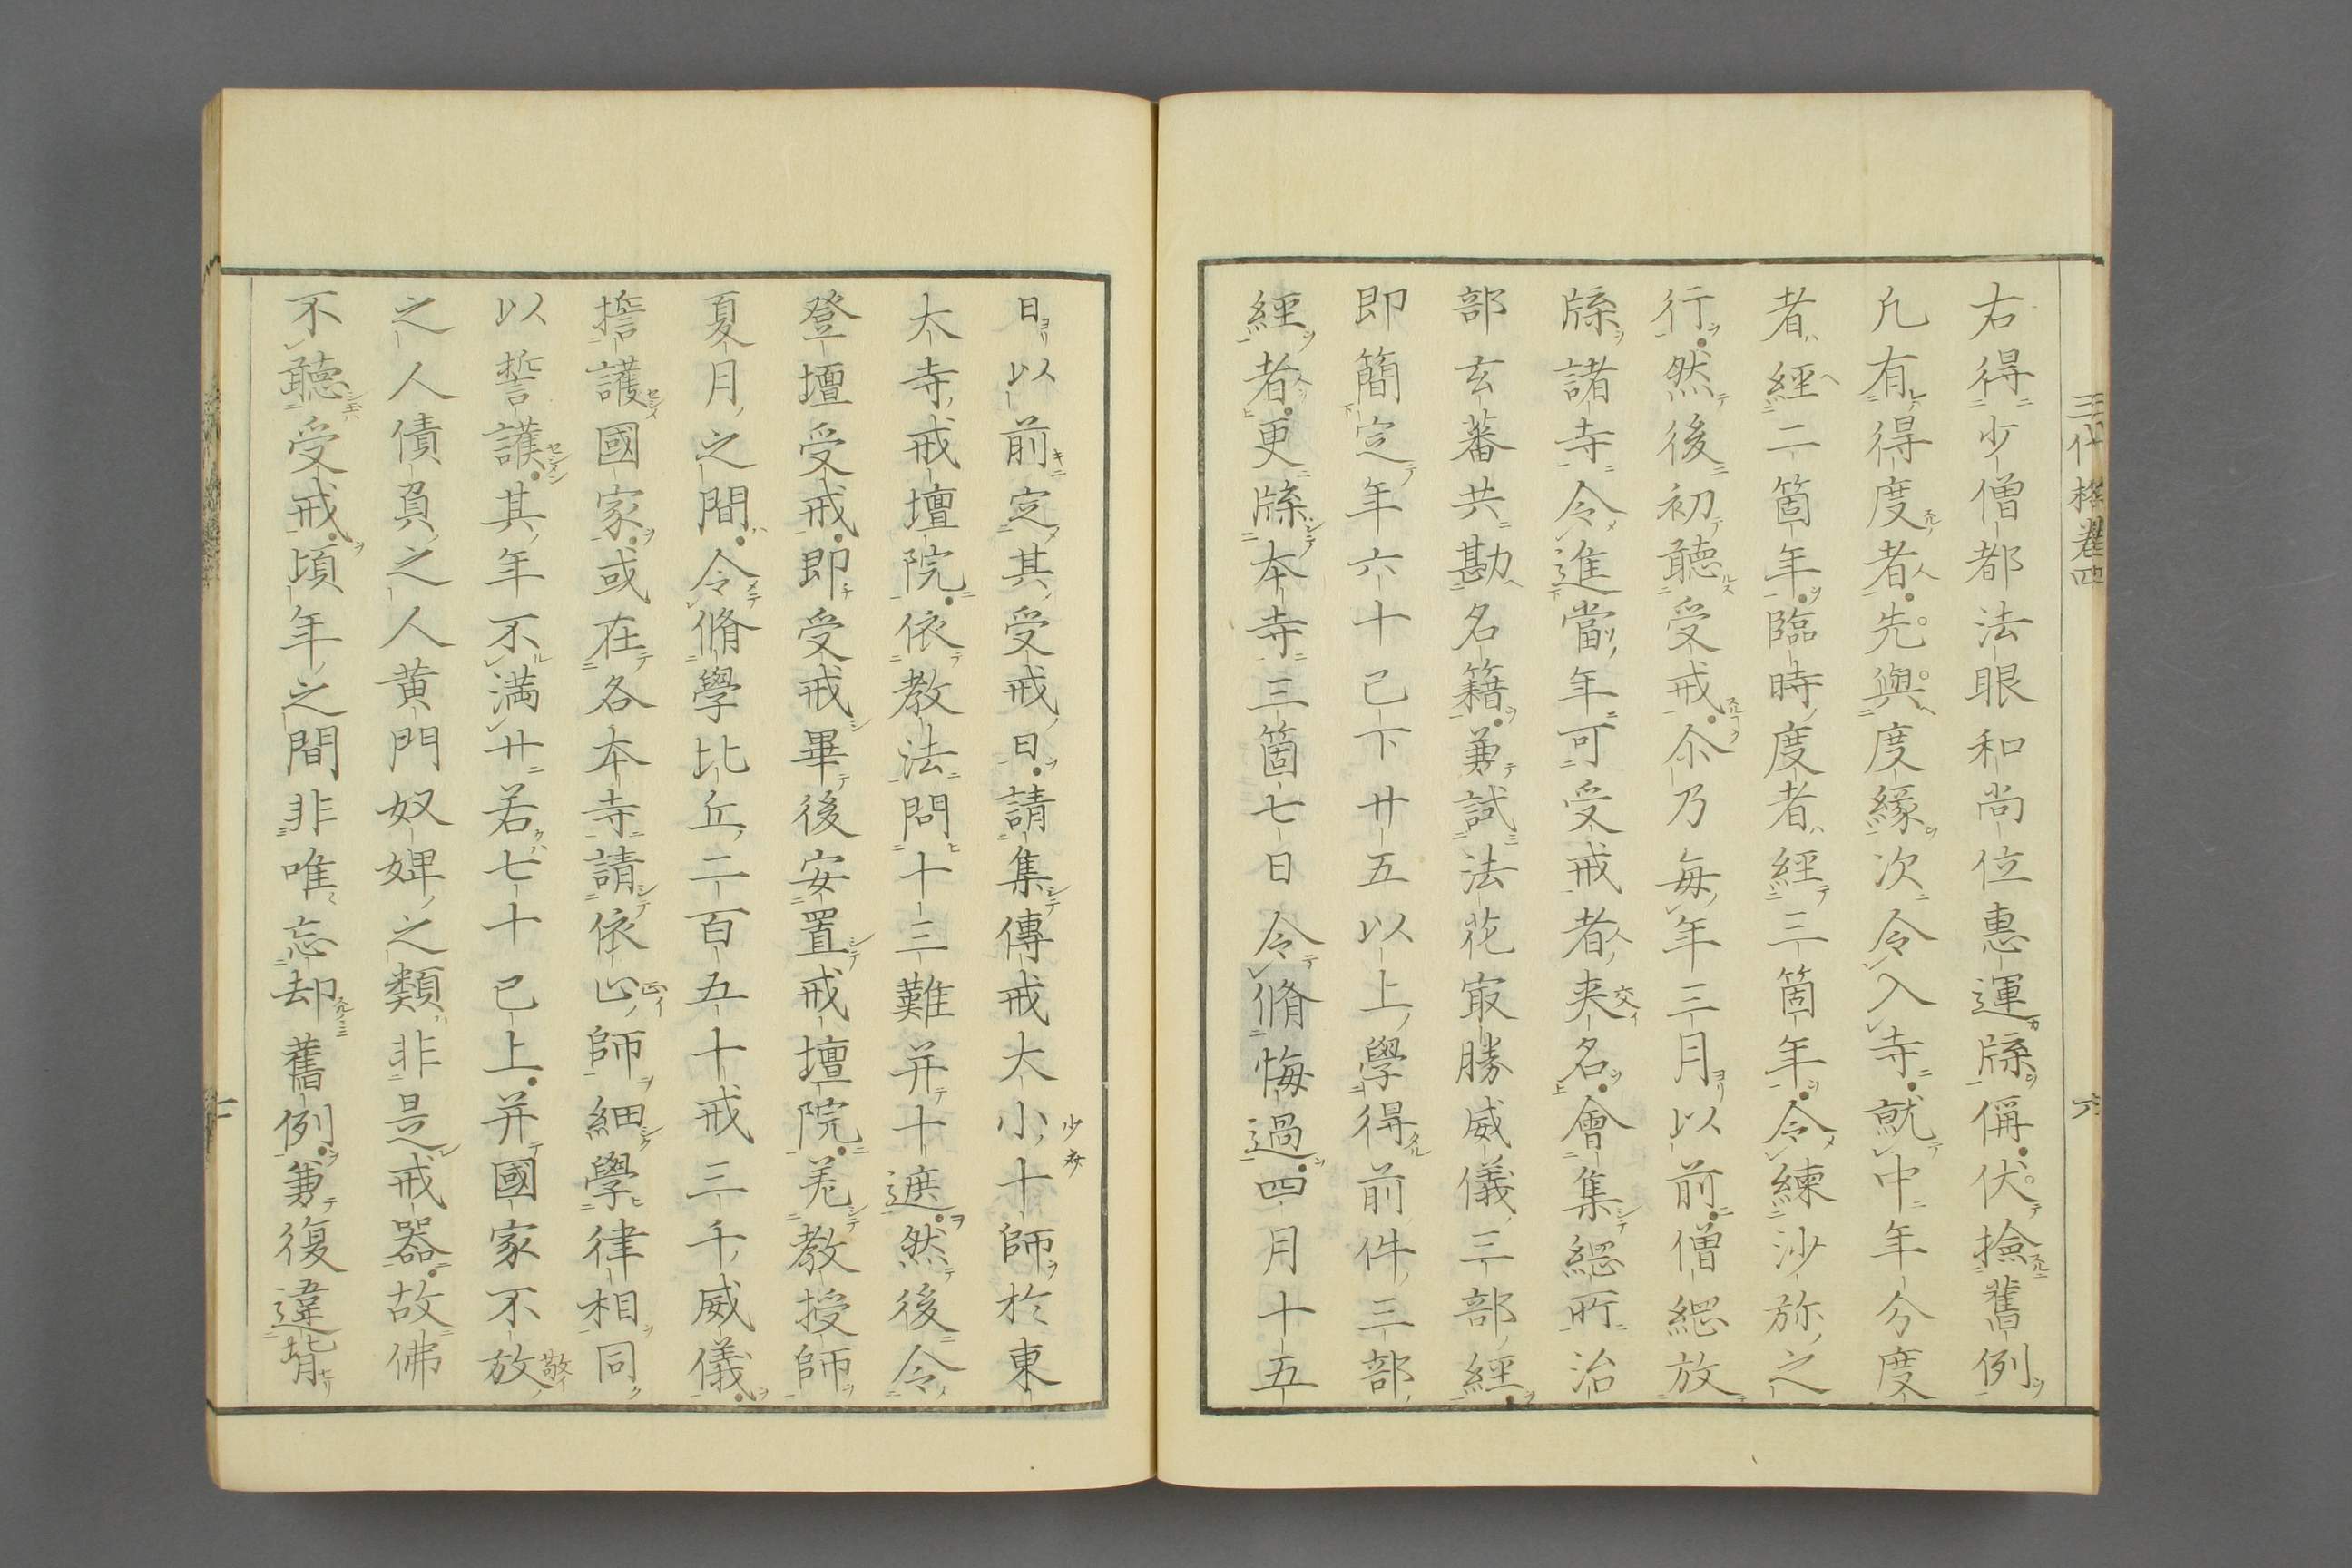 三代格卷四
六
右得少僧都法眼和尚位惠運牒偁伏撿舊例
凡有得度者先與度緣次令入寺就中年分度
者經二箇年臨時度者經三箇年令練沙弥之
行然後初聽受戒尒乃每年三月以前僧綱放
牒諸寺令進當年可受戒者夾名會集綱所治
部玄蕃共勘名籍兼試法花㝡勝威儀三部經
即簡定年六十已下廿五以上學得前件三部
經者更牒本寺三箇七日令脩悔過四月十五
日以前定其受戒日請集傳戒大小十師於東
大寺戒壇院依教法問十三難并十遮然後令
登壇受戒即受戒畢後安置戒壇院差教授師
夏月之間令脩學比丘二百五十戒三千威儀
擔護國家或在各本寺請依心師細學律相同
以誓護其年不満廿若七十已上并國家不放
之人債負之人黄門奴婢之類非是戒器故佛
不聽受戒頃年之間非唯忘却舊例兼復違背